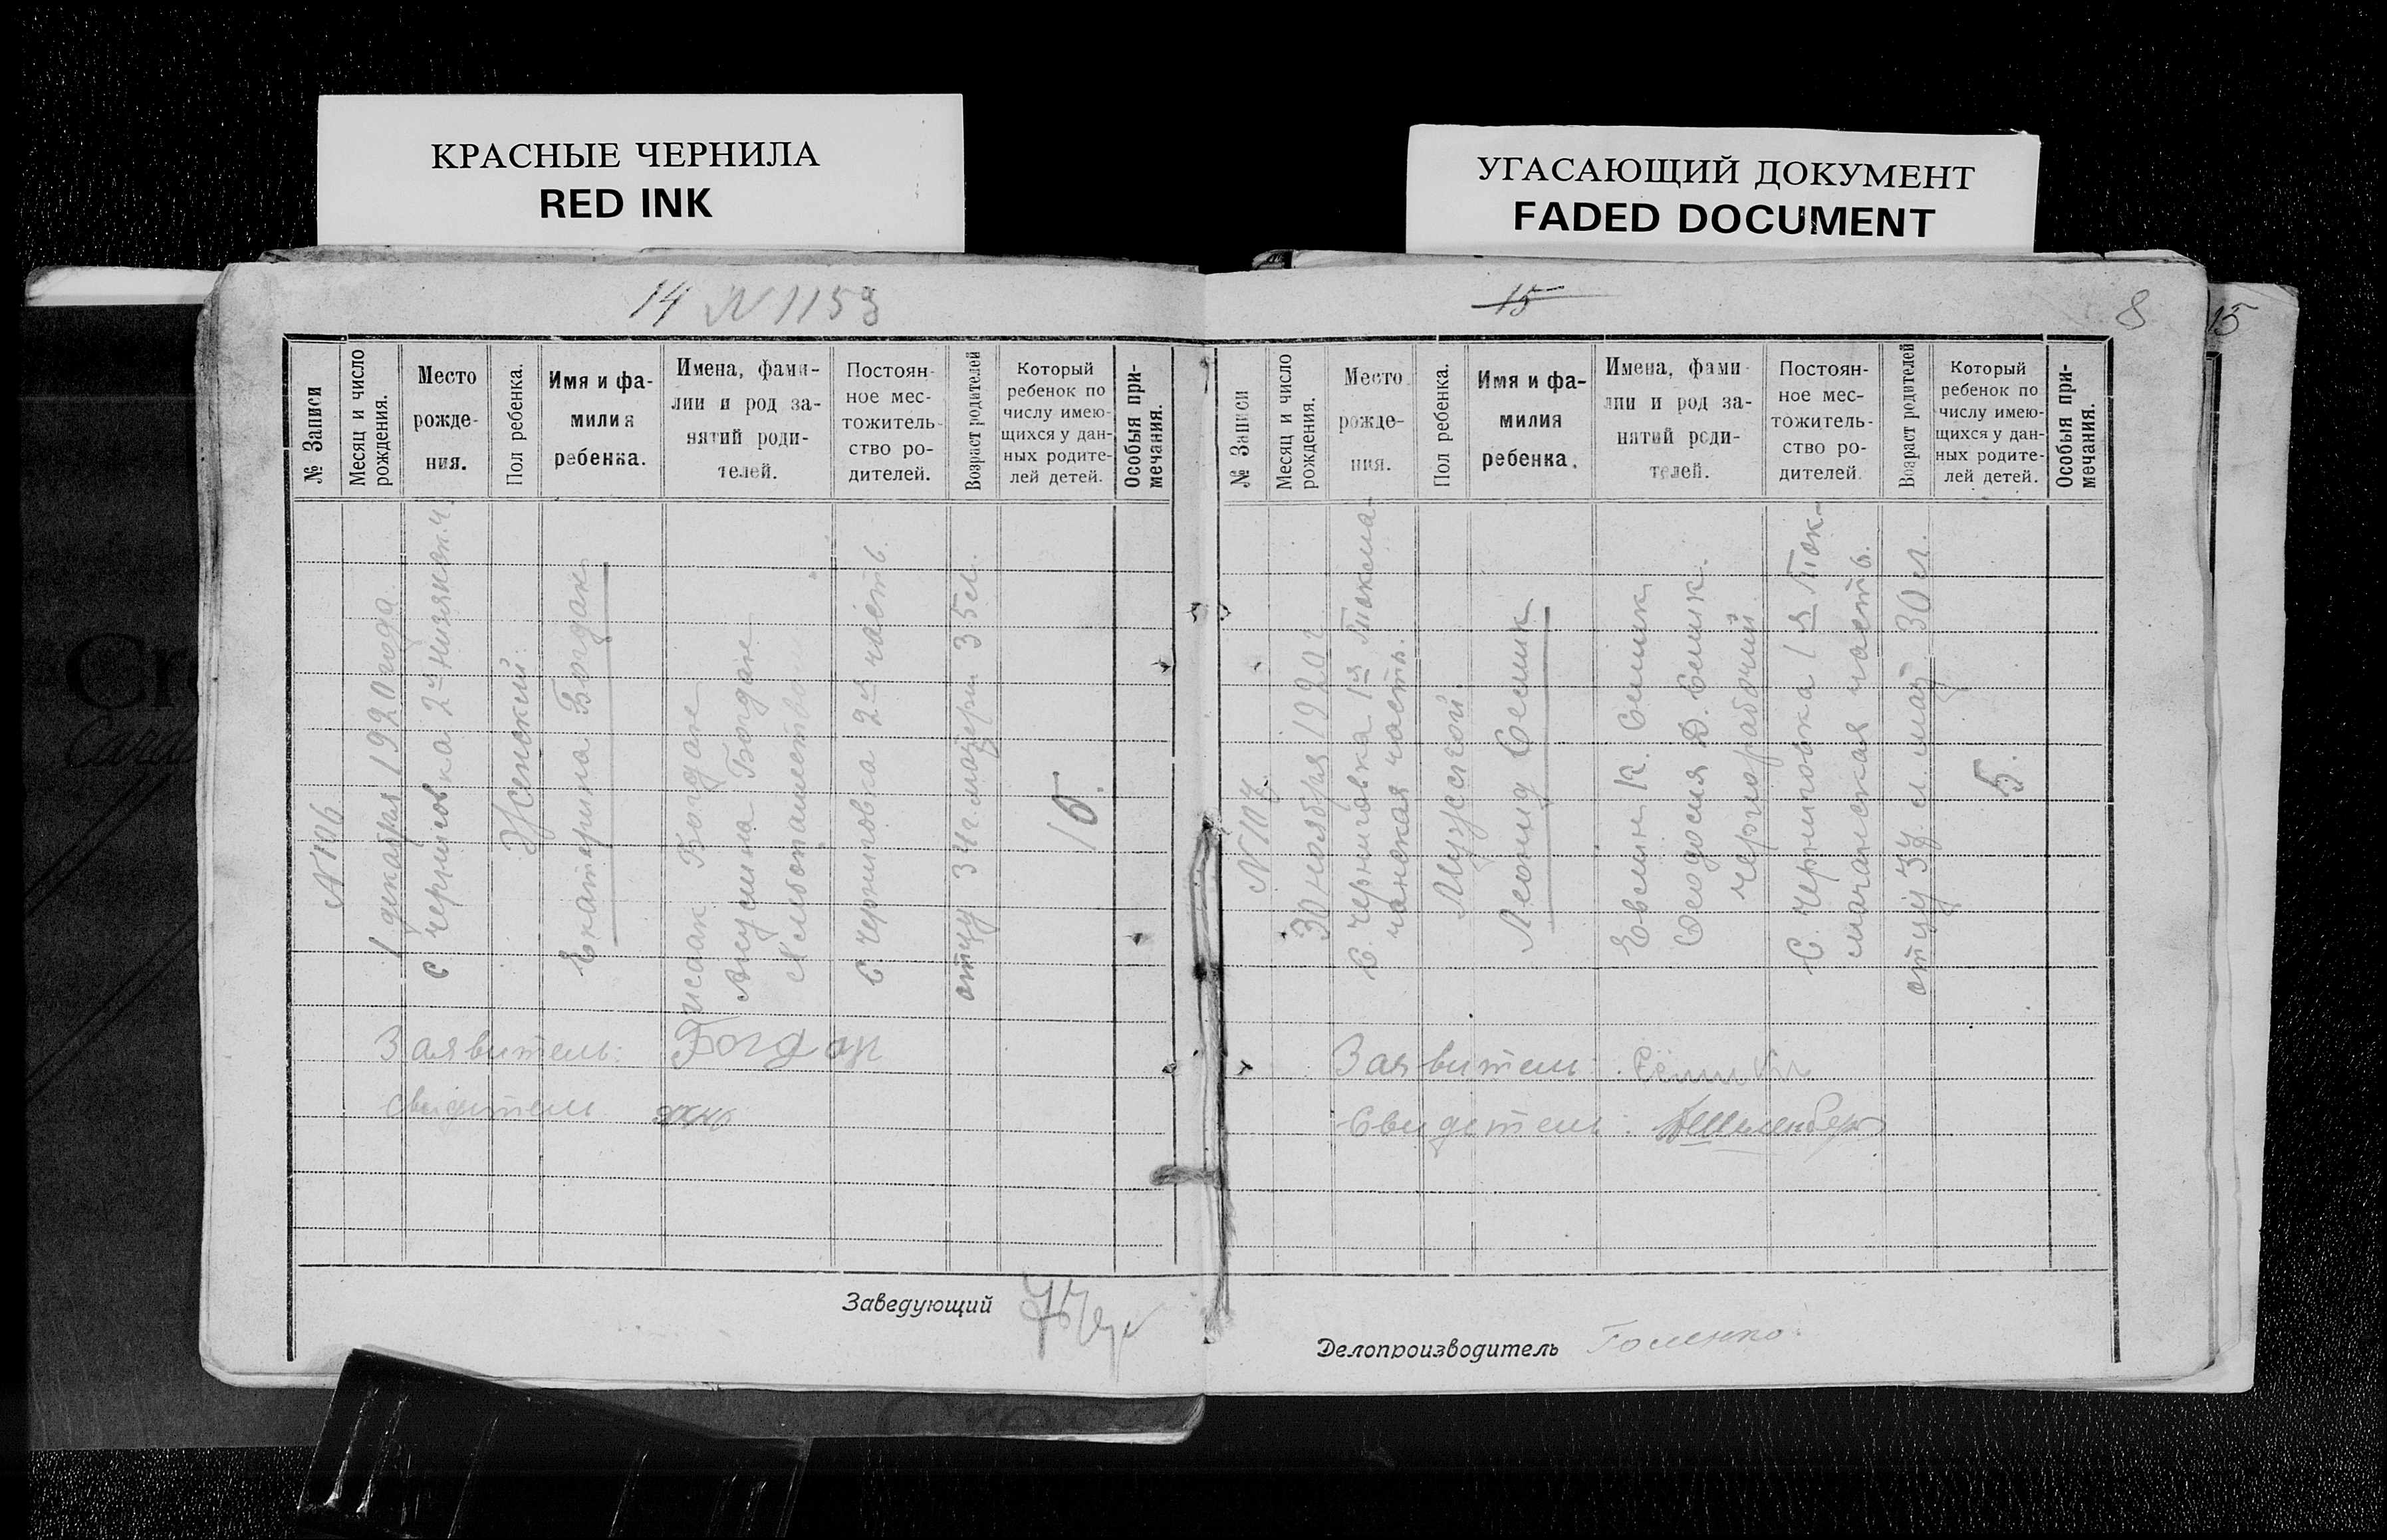 КРАСНЫЕ ЧЕРНИЛА
RED INK
УГАСАЮЩИЙ ДОКУМЕНТ
FADED DOCUMENT
14 N 1153
№ Записи
Месяц и число
рождения.
Место
рожде-
ния.
Пол ребенка.
Имя и фа-
милия
ребенка.
Имена, фами-
лии и род за-
нятий роди-
телей.
Постоян-
ное мес-
тожитель-
ство ро-
дителей.
Возраст родителей
Который
ребенок по
числу имею-
щихся у дан-
ных родите-
лей детей.
Особыя при-
мечания.
1 декабря 1920 года
с Черниговка 2ч
Женский
Екатерина Богдан
Исаак Богдан
Богдан
с Черниговка 2я часть.
отцу 34 г. матери 35 л.
Заявитель: Богдан
свидетель
Заведующий
15
8
15
№ Записи
Месяц и число
рождения.
Место
рожде-
ния.
Пол ребенка.
Имя и фа-
милия
ребенка.
Имена, фами-
лии и род за-
нятий роди-
телей.
Постоян-
ное мес-
тожитель-
ство ро-
дителей.
Возраст родителей
Который
ребенок по
числу имею-
щихся у дан-
ных родите-
лей детей.
Особыя при-
мечания.
30 ноября 1920 г
С. Черниговка 1я Токма-
чанская часть.
Мужской.
Леонид Семик
К. Семик
Феодосия Д. Семик.
чернорабочий
С. Черниговка 1я Ток-
мачанская часть.
отцу 37 л. мат 30 л.
5.
Заявитель:
Свидетель:
Делопроизводитель Голенко.